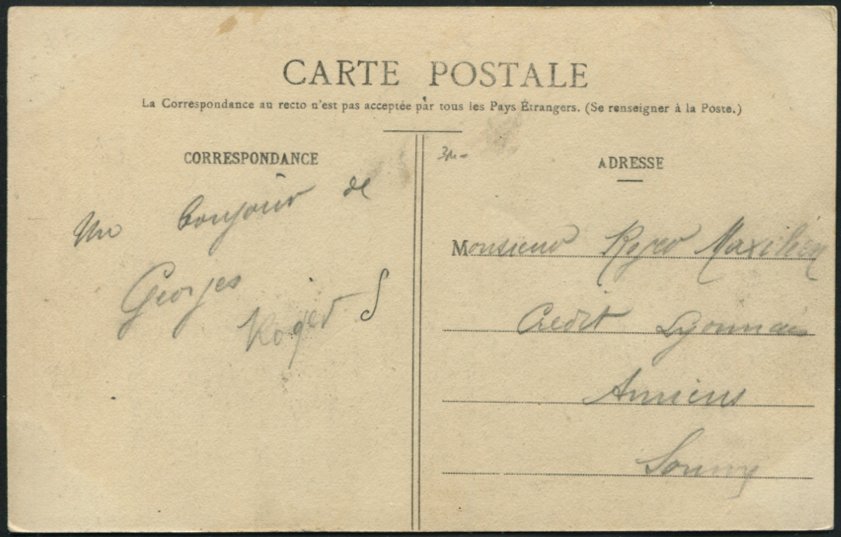 CARTE POSTALE
La Correspondance au recto n'est pas acceptée par tous les Pays Étrangers. (Se renseigner à la Poste.)
CORRESPONDANCE
Un bonjour de
Georges
Roger
ADRESSE
Monsieur Roger
Crédit Lyonnais
Amiens
Somme